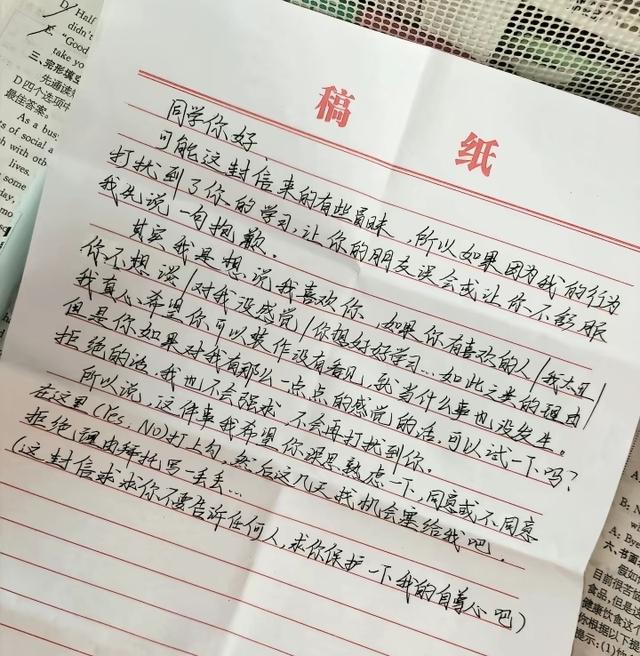 D/ Half
didn't
"Good
take yo
三、完形填空
先通读短
D四个选项中
最佳答案。
As a bus
ts of social a
with othe
lives.
some
稿 纸
同学你好
可能这封信来的有些冒昧,所以如果因为我的行为
打扰到了你的学习,让你的朋友误会或让你不舒服
我先说一句抱歉。
其实我是想说我喜欢你 如果你有喜欢的人/我太丑/
你不想谈/对我没感觉/你想好好学习...如此之类的理由
我真心希望你可以装作没有看见,就当什么事也没发生。
但是你如果对我有那么一点点的感觉的话,可以试一下吗?
拒绝的话,我也不会强求,不会再打扰到你。
所以说,这件事我希望你深思熟虑一下,同意或不同意
在这里(Yes, No)打上勾,然后这几天找机会塞给我吧。
拒绝理由拜托写一丢丢...
(这封信求求你不要告诉任何人,求你保护一下我的自尊心吧)
A:
B: N
A: Bye
六、书面
假如
目前很苦恼
食品,但是
健康饮食这个
你根据以下
提示:(1)